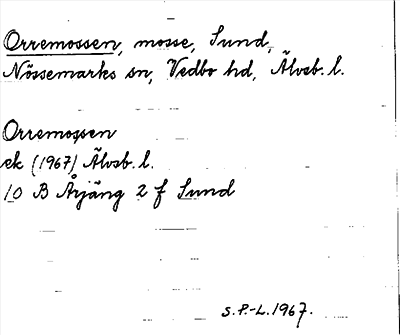 Orremossen, mosse, Sund,
Nössemarks sn, Vedbo hd, Älvsb. l.
Orremossen
ek (1967) Älvsb. l.
10 B Årjäng 2 f Sund
S.P.-L. 1967.